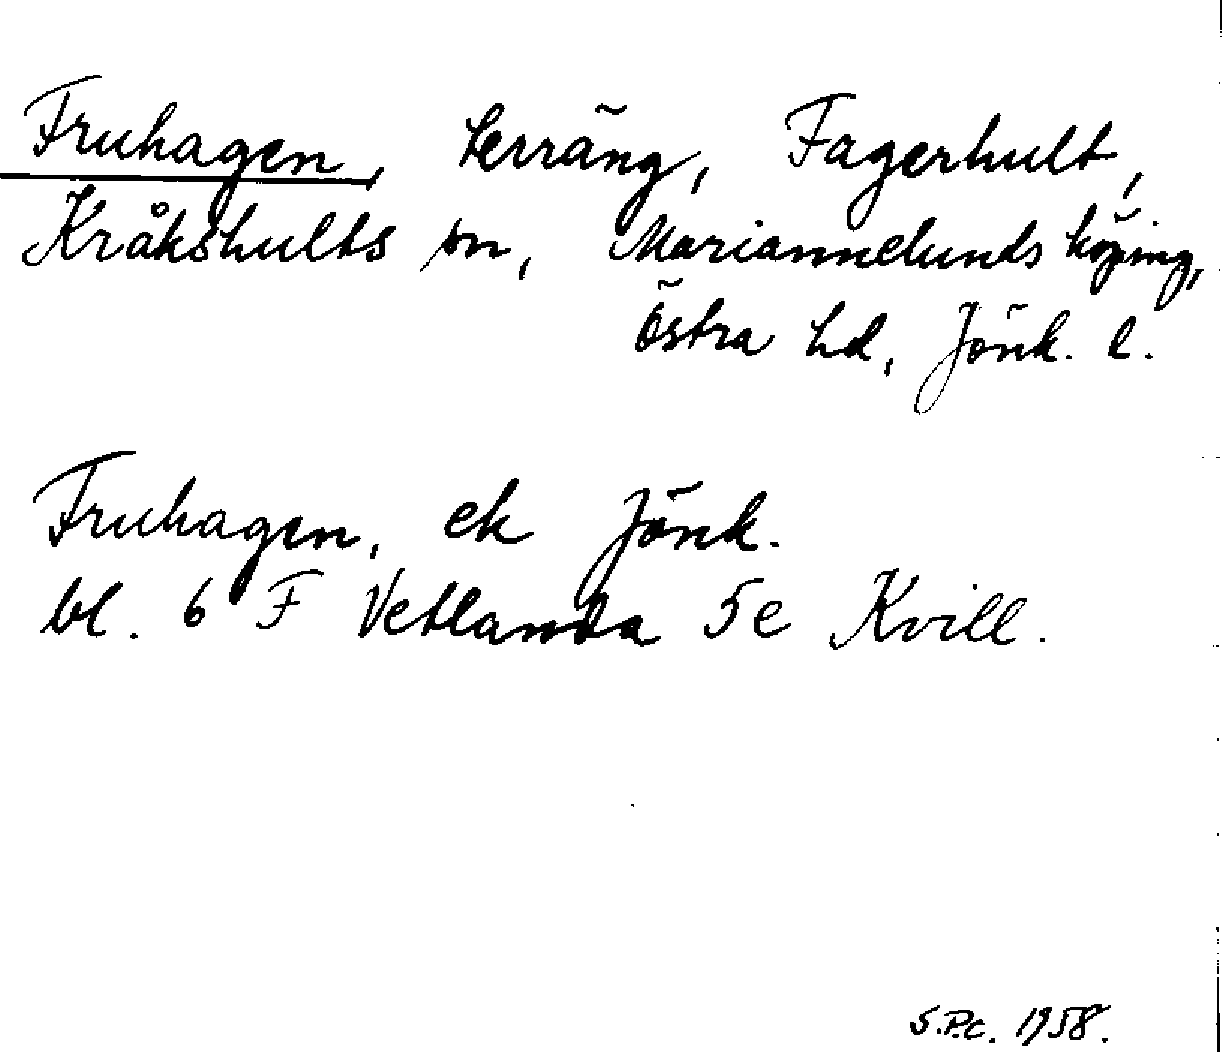 Fruhagen, terräng, Fagerhult,
Kråkshults sn, Mariannelunds köping,
Östra hd, Jönk. l.
Fruhagen, ek Jönk.
bl. 6 F Vetlanda 5e Kvill.
S.P.C. 1958.